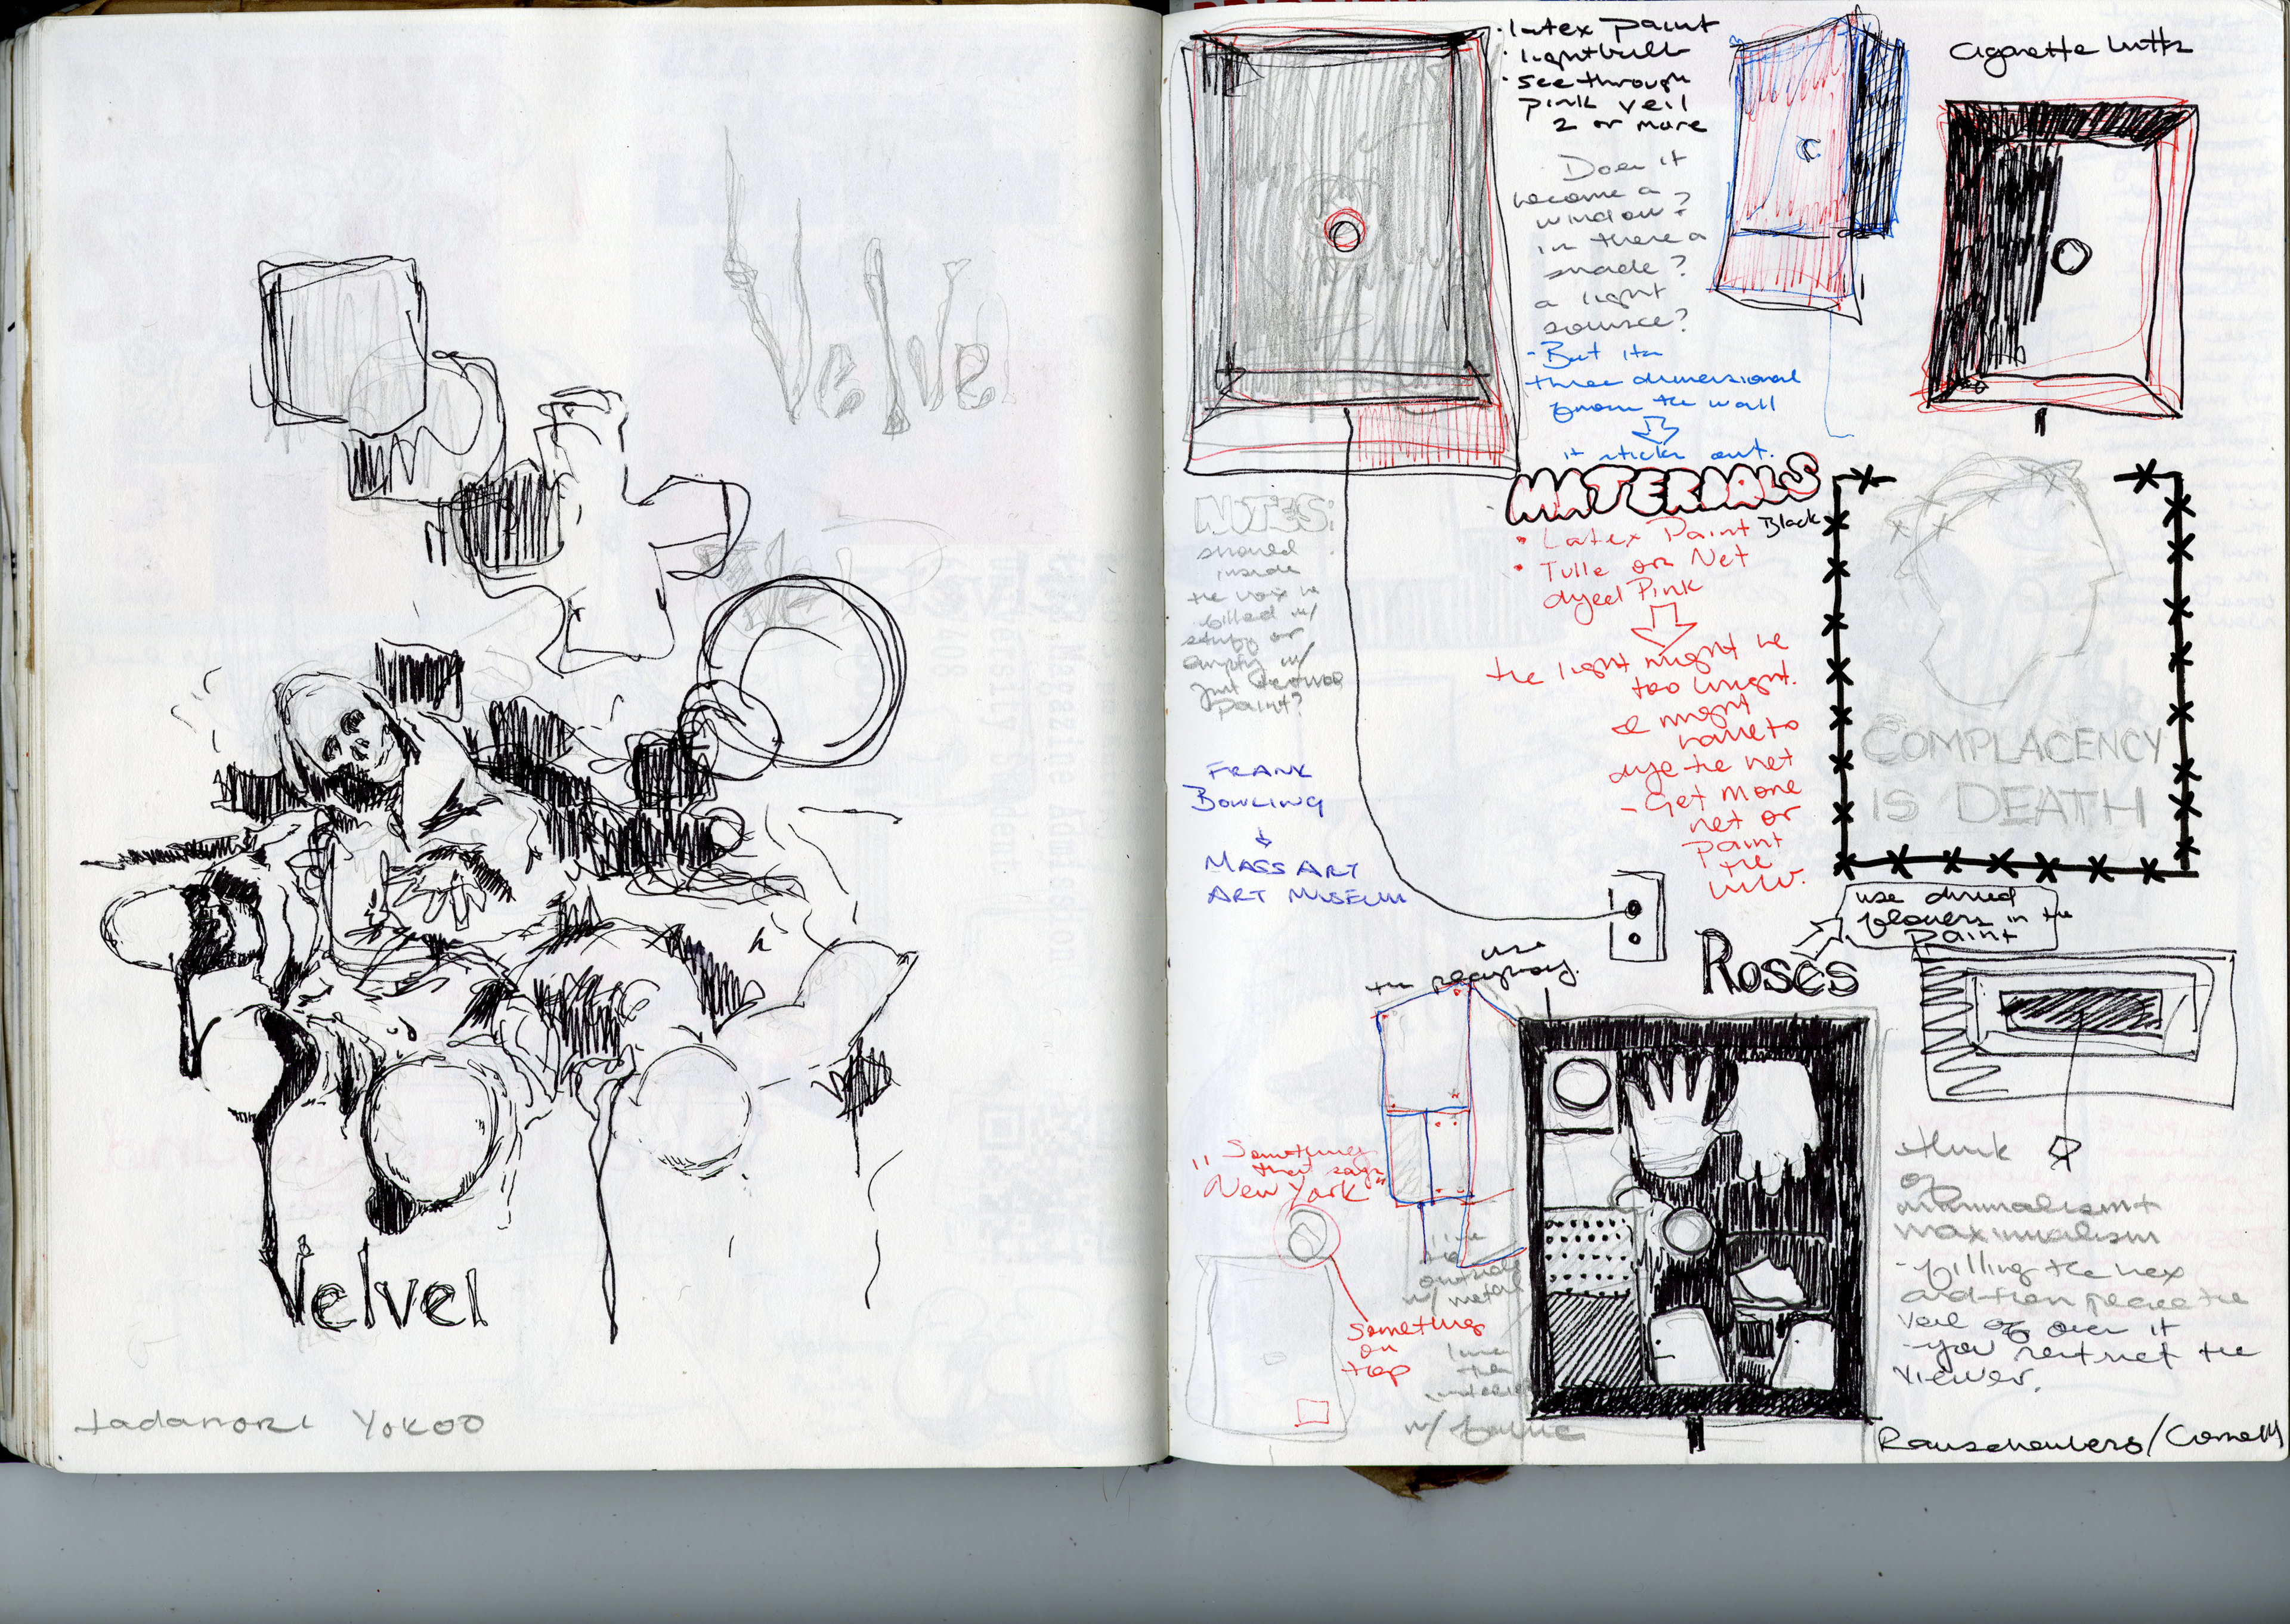 Velvet
Velvet
tadanori Yokoo
· latex paint
· lightbulb
· see through
pink veil
2 or more
Does it
become a
window?
is there a
shade?
a light
source?
- But its
three dimensional
from the wall
it sticks out.
cigarette butts
MATERIALS
• Latex Paint Black
• Tulle or Net
dyed Pink
the light might be
too bright.
I might
have to
dye the net
- Get more
net or
paint
the
bulb.
NOTES:
should
inside
the box be
filled w/
stuff or
empty w/
just
paint?
FRANK
BOWLING
MASS ART
ART MUSEUM
COMPLACENCY
IS DEATH
use dried
flowers in the
paint
ROSES
use
the
"Something
that says
New York"
Something
on
top
line
the
outside
w/ metal
line
the
interior
w/ fabric
think
of
minimalism +
maximalism
- filling the box
and then place the
veil of over it
- you restrict the
viewer.
Rauschenberg/Cornell